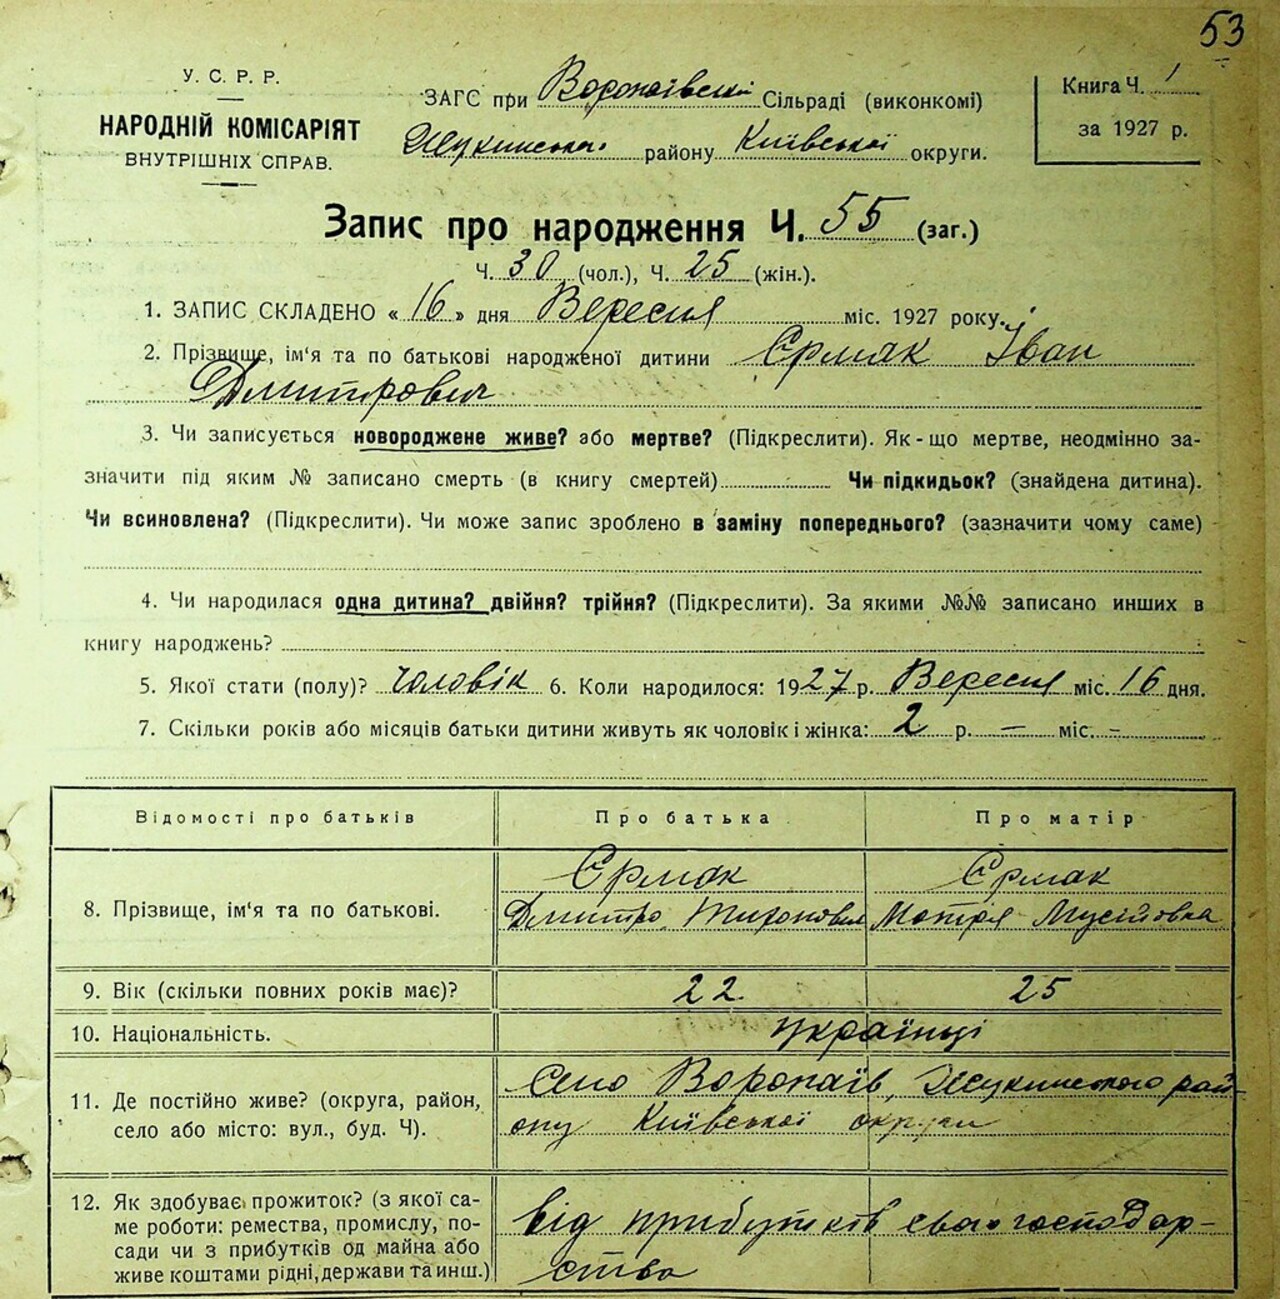 53
У. С. Р. Р.
НАРОДНІЙ КОМІСАРІЯТ
ВНУТРІШНІХ СПРАВ.
ЗАГС при Воропаївській Сільраді (виконкомі)
Жукинського району Київської округи.
Книга Ч. 1
за 1927 р.
Запис про народження Ч. 55 (заг.)
Ч. 30 (чол.), Ч. 25 (жін.).
1. ЗАПИС СКЛАДЕНО « 16 » дня Вересня міс. 1927 року.
2. Прізвище, ім‘я та по батькові народженої дитини Єрмак Іван
Дмитрович
3. Чи записується новороджене живе? або мертве? (Підкреслити). Як-що мертве, неодмінно за-
значити під яким № записано смерть (в книгу смертей) Чи підкидьок? (знайдена дитина).
Чи всиновлена? (Підкреслити). Чи може запис зроблено в заміну попереднього? (зазначити чому саме)
4. Чи народилася одна дитина? двійня? трійня? (Підкреслити). За якими №№ записано инших в
книгу народжень?
5. Якої стати (полу)? Чоловік 6. Коли народилося: 1927 р. Вересня міс. 16 дня.
7. Скільки років або місяців батьки дитини живуть як чоловік і жінка: 2 р. — міс. –
Відомості про батьків Про батька Про матір
8. Прізвище, ім‘я та по батькові. Єрмак Дмитро Тихонович Єрмак Мотря Мусіївна
9. Вік (скільки повних років має)? 22 25
10. Національність. Українці
11. Де постійно живе? (округа, район,
село або місто: вул., буд. Ч).
Село Воропаїв, Жукинського рай-
ону Київської округи
12. Як здобуває прожиток? (з якої са-
ме роботи: ремества, промислу, по-
сади чи з прибутків од майна або
живе коштами рідні, держави та инш.)
Від прибутків свого господар-
ства